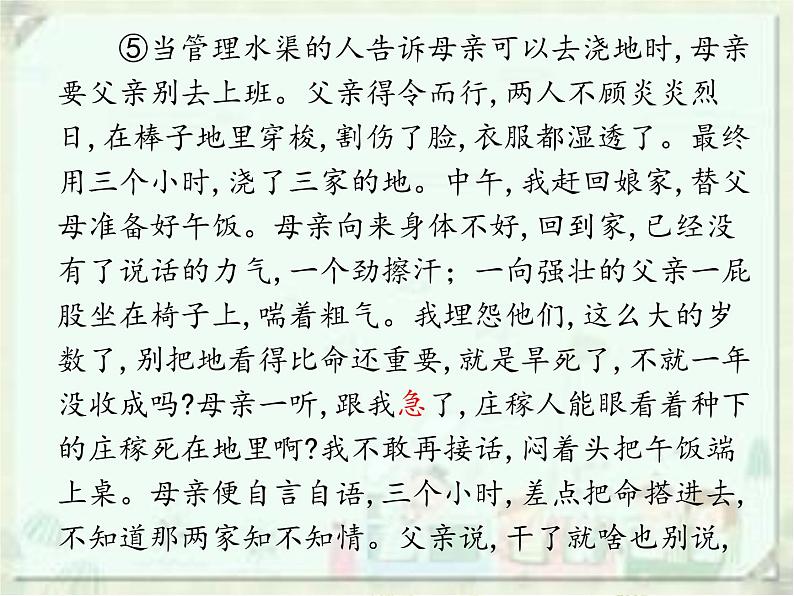 ⑤当管理水渠的人告诉母亲可以去浇地时,母亲
要父亲别去上班。父亲得令而行,两人不顾炎炎烈
日,在棒子地里穿梭,割伤了脸,衣服都湿透了。最终
用三个小时,浇了三家的地。中午,我赶回娘家,替父
母准备好午饭。母亲向来身体不好,回到家,已经没
有了说话的力气,一个劲擦汗；一向强壮的父亲一屁
股坐在椅子上,喘着粗气。我埋怨他们,这么大的岁
数了,别把地看得比命还重要,就是旱死了,不就一年
没收成吗?母亲一听,跟我急了,庄稼人能眼看着种下
的庄稼死在地里啊?我不敢再接话,闷着头把午饭端
上桌。母亲便自言自语,三个小时,差点把命搭进去,
不知道那两家知不知情。父亲说,干了就啥也别说,